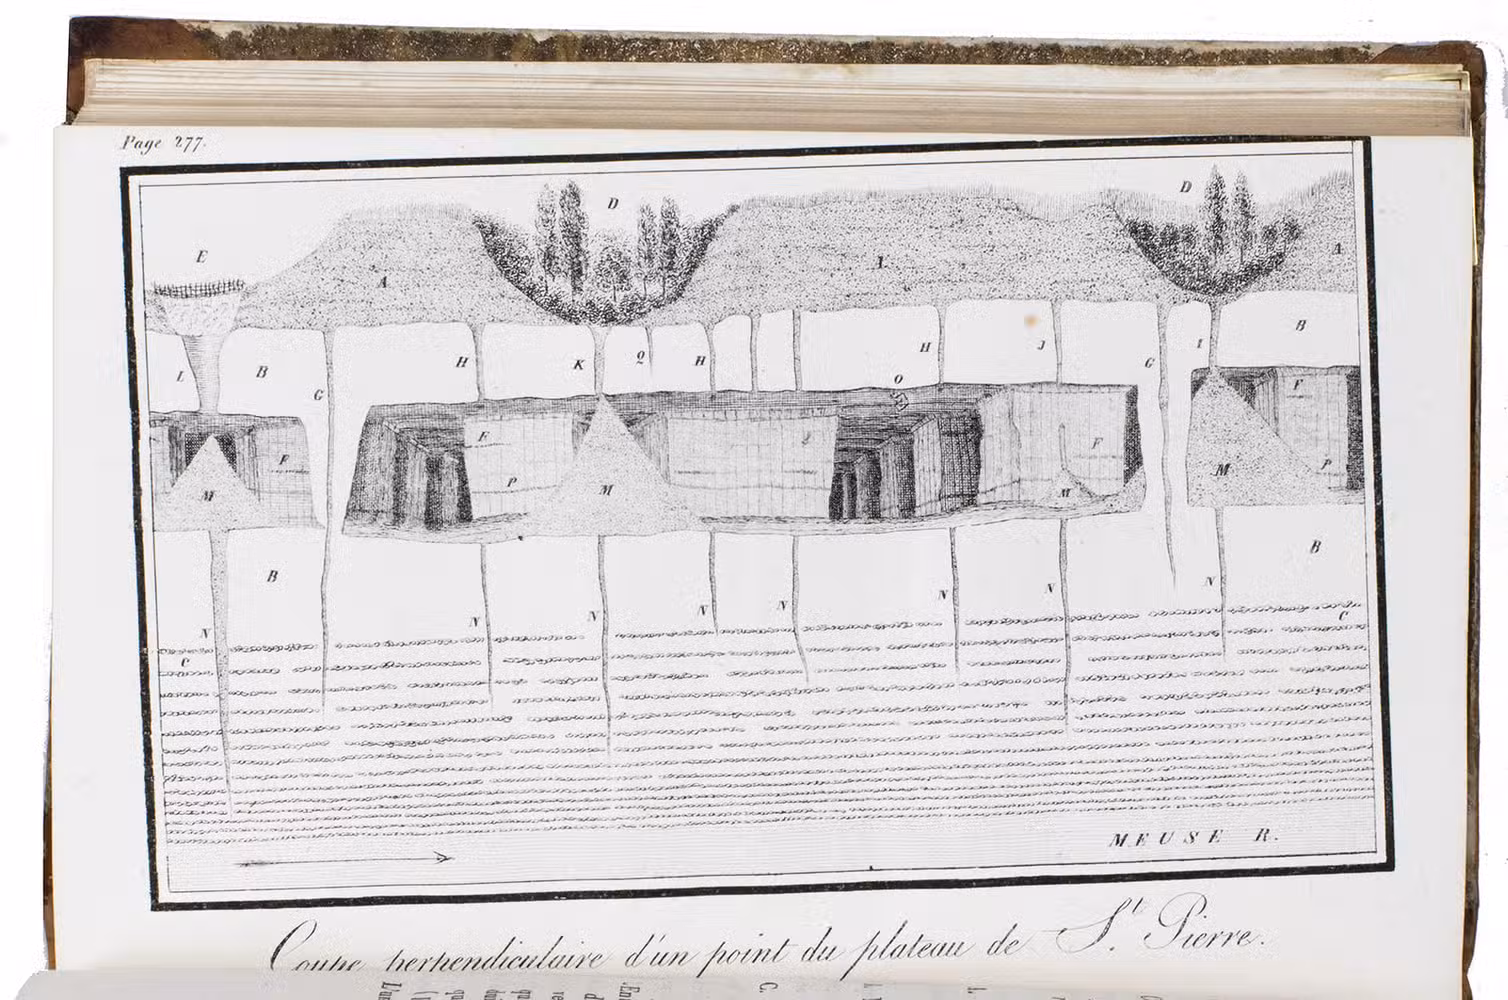 Page 277.
D
D
E
A
A
A
B
H
K
Q
H
H
J
G
I
L
B
G
O
F
F
F
F
P
P
M
M
M
M
B
B
N
N
N
N
N
N
N
C
C
MEUSE R.
Coupe perpendiculaire d'un point du plateau de St. Pierre.